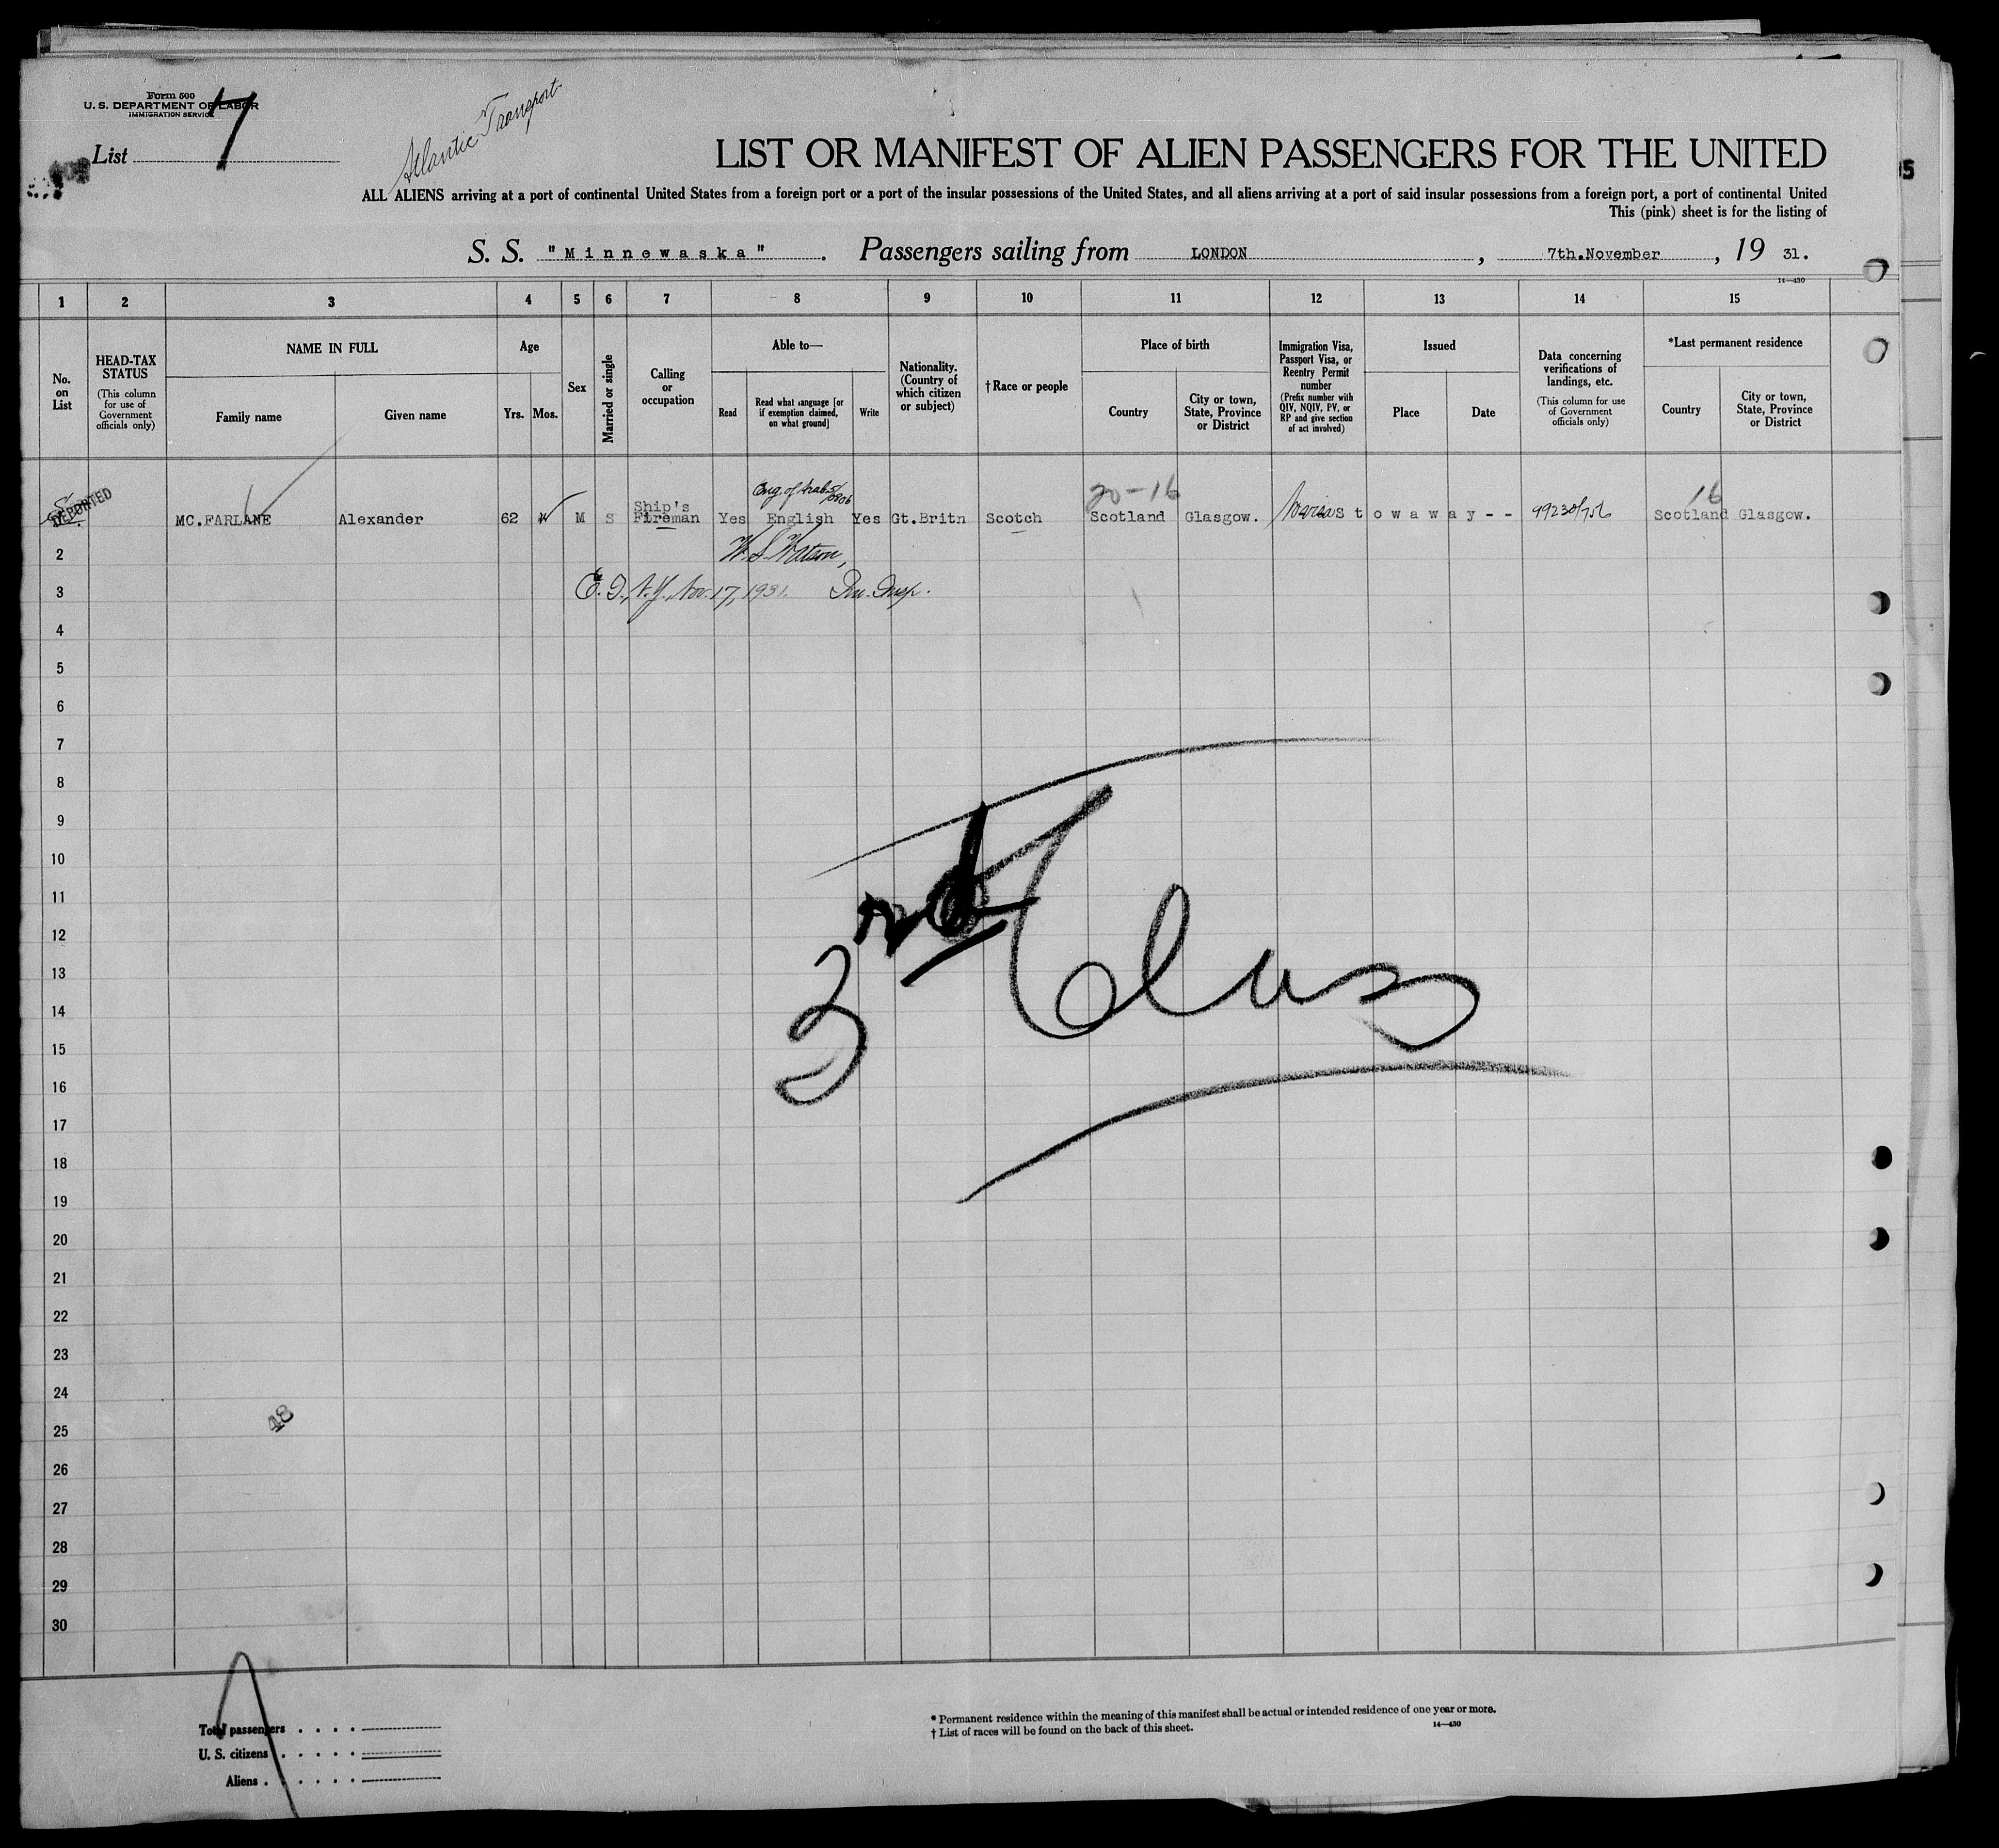 Form 500
U. S. DEPARTMENT OF LABOR
IMMIGRATION SERVICE
List 7
Atlantic Transport
LIST OR MANIFEST OF ALIEN PASSENGERS FOR THE UNITED
ALL ALIENS arriving at a port of continental United States from a foreign port or a port of the insular possessions of the United States, and all aliens arriving at a port of said insular possessions from a foreign port, a port of continental United
This (pink) sheet is for the listing of
5
S. S. "Minnewaska". Passengers sailing from LONDON, 7th.November, 19 31.
14—430
1 2 3 4 5 6 7 8 9 10 11 12 13 14 15
No. on List
HEAD-TAX STATUS
(This column for use of Government officials only)
NAME IN FULL
Family name
Given name
Age
Yrs. Mos.
Sex
Married or single
Calling or occupation
Able to—
Read
Read what language [or if exemption claimed, on what ground]
Write
Nationality. (Country of which citizen or subject)
†Race or people
Place of birth
Country
City or town, State, Province or District
Immigration Visa, Passport Visa, or Reentry Permit number
(Prefix number with QIV, NQIV, PV, or RP and give section of act involved)
Issued
Place
Date
Data concerning verifications of landings, etc.
(This column for use of Government officials only)
*Last permanent residence
Country
City or town, State, Province or District
DEPORTED
20-16 16
MC.FARLANE Alexander 62 M S Ship's Fireman Yes English Yes Gt.Britn Scotch Scotland Glasgow. Stowaway-- 99230/756 Scotland Glasgow.
2
W. S. Watson,
3
E. I., N.Y., Nov. 17, 1931. Im. Insp.
4
5
6
7
8
9
10
11
12
13
14
15
16
17
18
19
20
21
22
23
24
25
26
27
28
29
30
3rd Class
48
Total passengers . . . .
U. S. citizens . . . . .
Aliens . . . . . .
* Permanent residence within the meaning of this manifest shall be actual or intended residence of one year or more.
† List of races will be found on the back of this sheet.
14—430